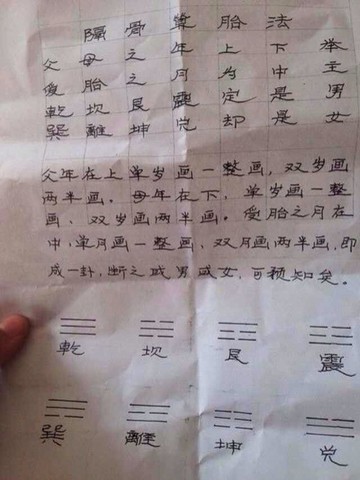 隔骨算胎法
父母之年上下举
受胎之月为中主
乾坎艮震定是男
巽離坤兑却是女
父年在上单岁画一整画，双岁画
两半画。母年在下，单岁画一整
画、双岁画两半画。受胎之月在
中，单月画一整画、双月画两半画，即
成一卦，断之或男或女，可预知矣。
☰ ☵ ☶ ☳
乾 坎 艮 震
☴ ☲ ☷ ☱
巽 離 坤 兑